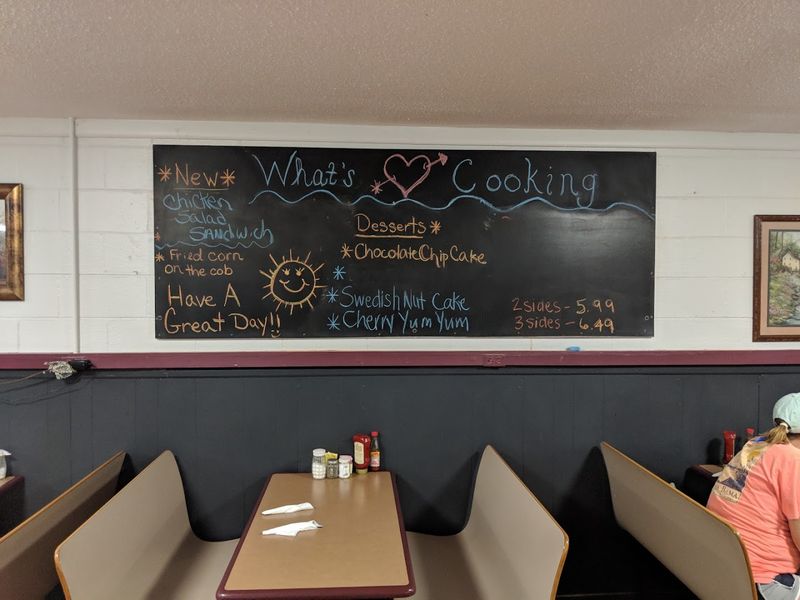 What's Cooking
*New*
Chicken
Salad
SANDWich
* Fried corn
on the cob
Have A
Great Day!!
Desserts *
* Chocolate Chip Cake
*
* Swedish Nut Cake
* Cherry Yum Yum
2 sides - 5.99
3 sides - 6.49